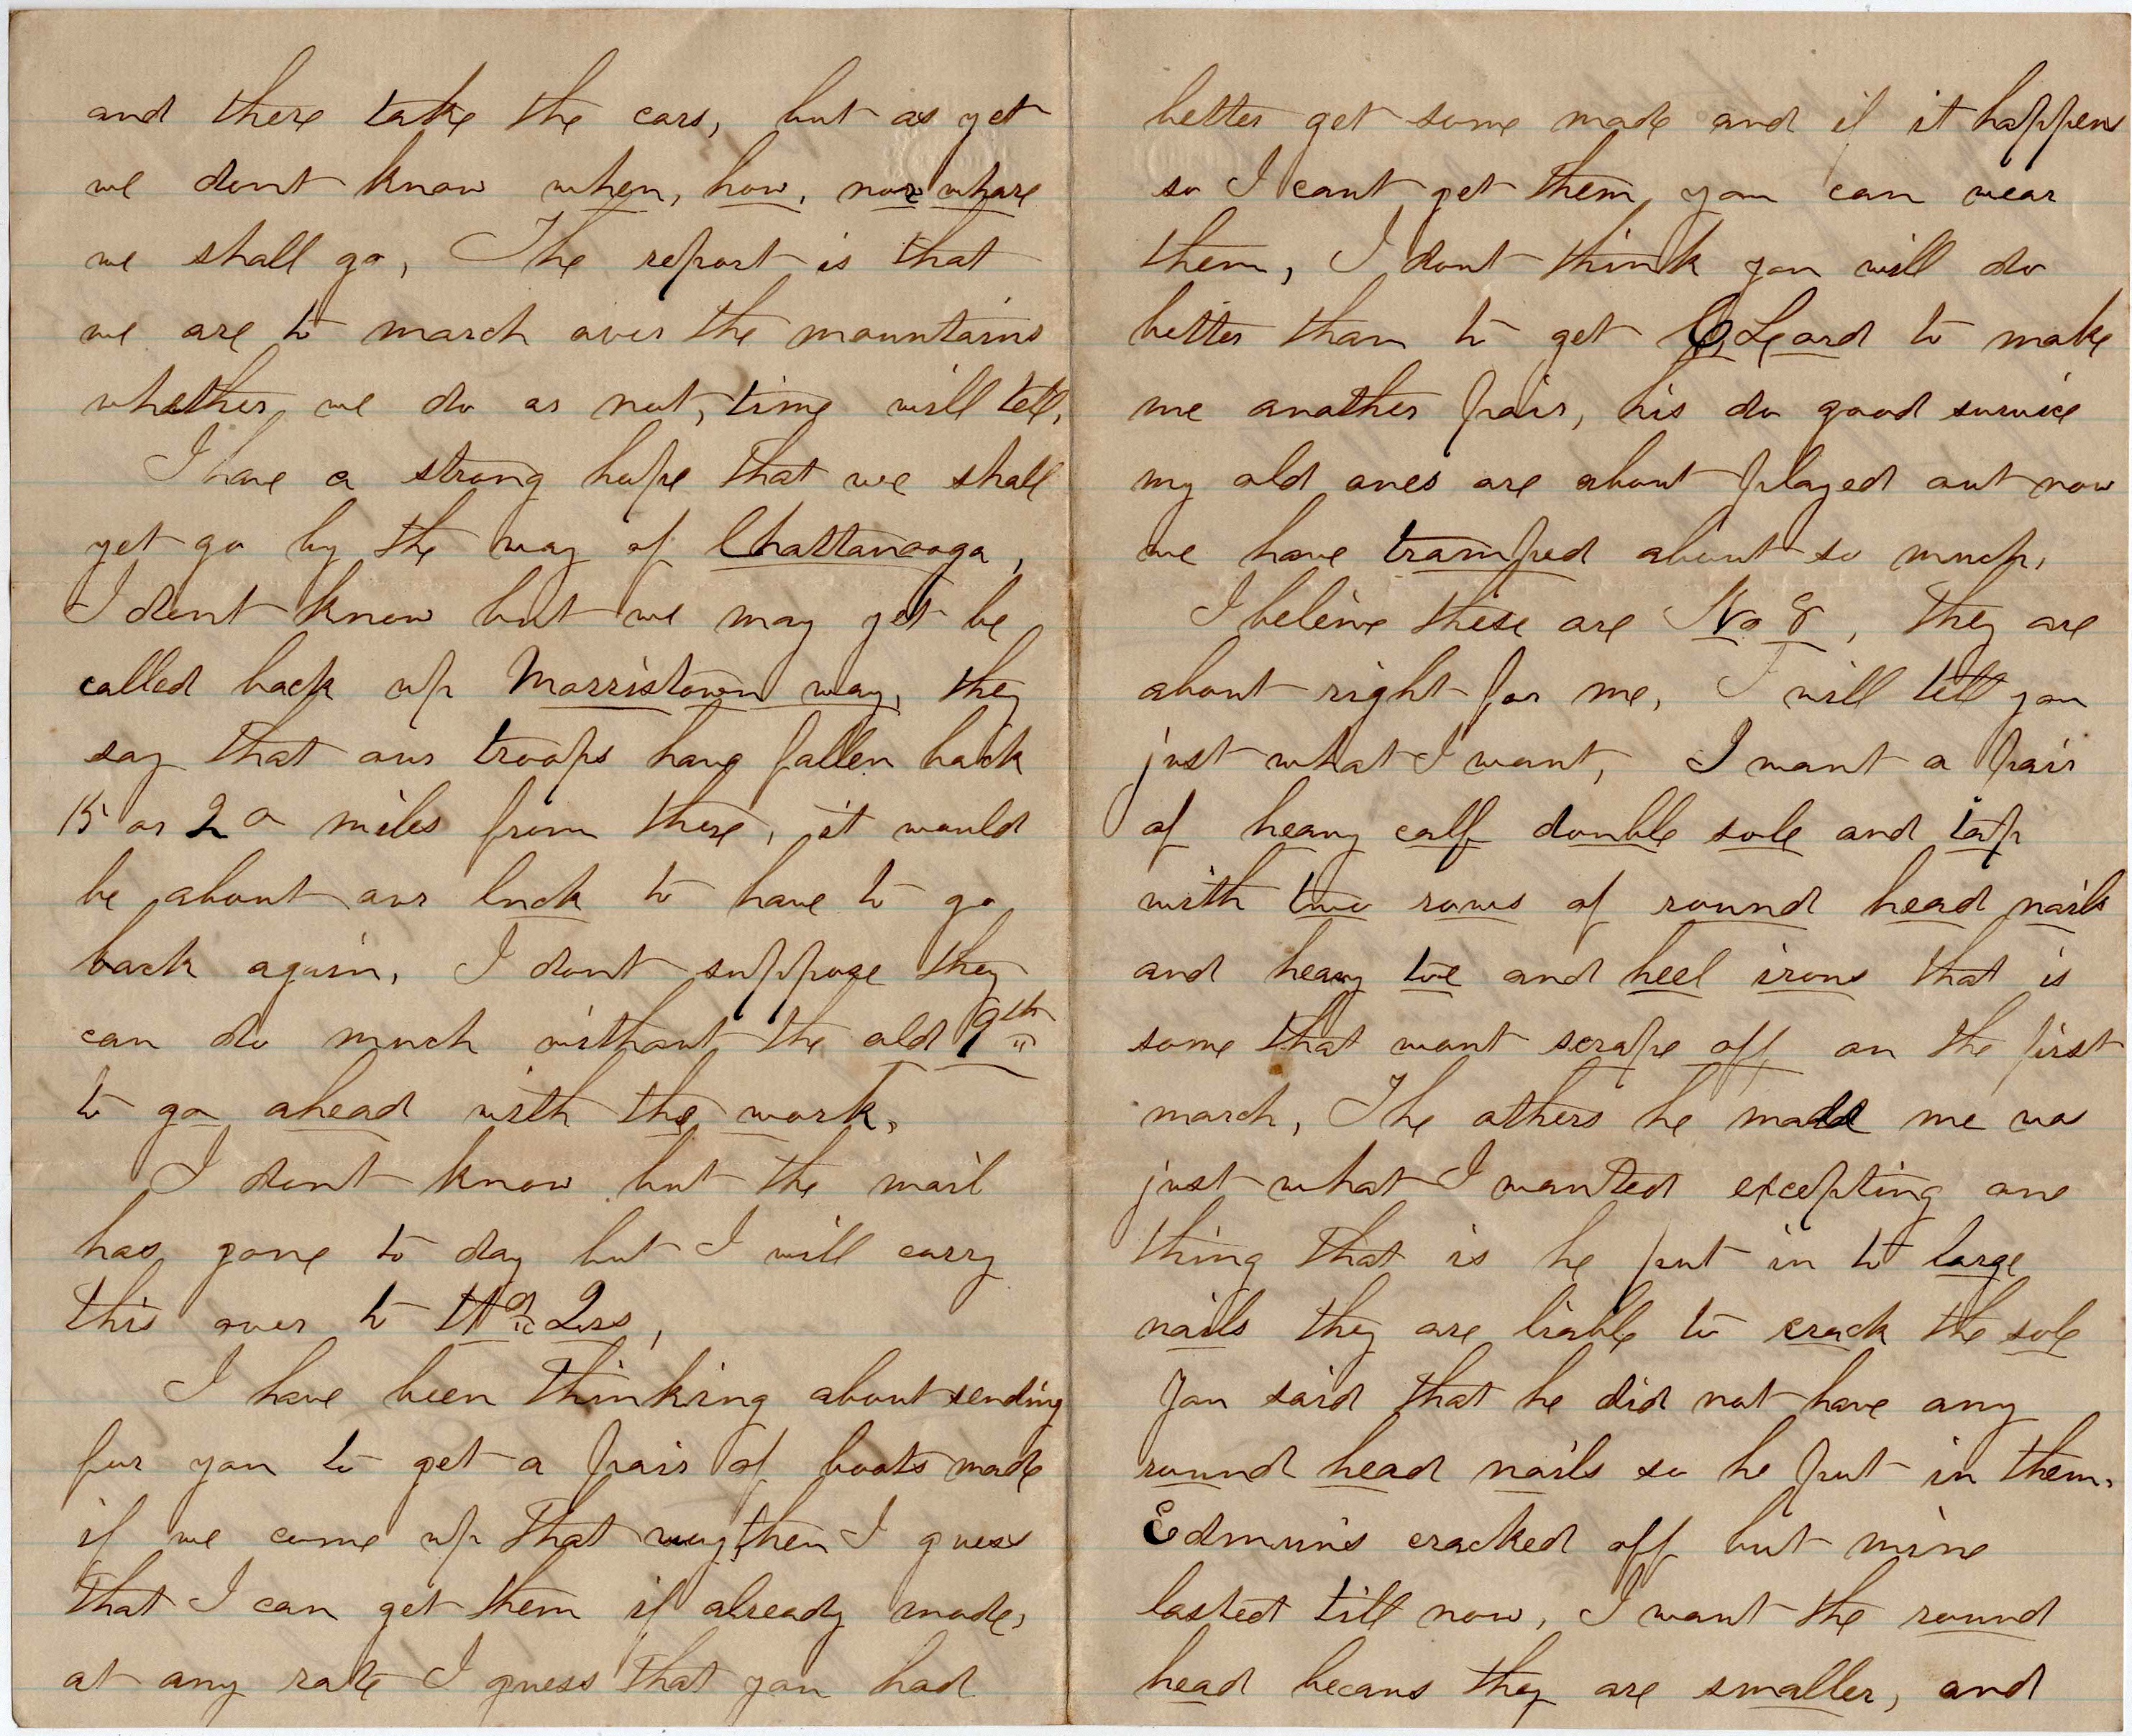 and there take the cars, but as yet
we dont know when, how, nor whare
we shall go, The report is that
we are to march over the mountains
whether we do or not, time will tell,
I have a strong hope that we shall
yet go by the way of Chattanooga,
I dont know but we may yet be
called back up Morristown way, they
say that our troops have fallen back
15 or 20 miles from there, it would
be about our luck to have to go
back again, I dont suppose they
can do much without the old 9th
to go ahead with the work,
I dont know but the mail
has gone to day but I will carry
this over to Hd Qrs,
I have been thinking about sending
for you to get a pair of boots made
if we come up that way, then I guess
that I can get them if already made,
at any rate I guess that you had
better get some made and if it happens
so I cant get them you can wear
them, I dont think you will do
better than to get Leard to make
me another pair, his do good survice
my old ones are about played out now
we have tramped about so much,
I beleive these are No 8, they are
about right for me, I will tell you
just what I want, I want a pair
of heavy calf double sole and tap
with two rows of round head nails
and heavy toe and heel irons that is
some that wont scrape off on the first
march, The others he made me was
just what I wanted excepting one
thing that is he put in to large
nails they are liable to crack the sole
You said that he did not have any
round head nails so he put in them.
Edmuns cracked off but mine
lasted till now, I want the round
head becaus they are smaller, and